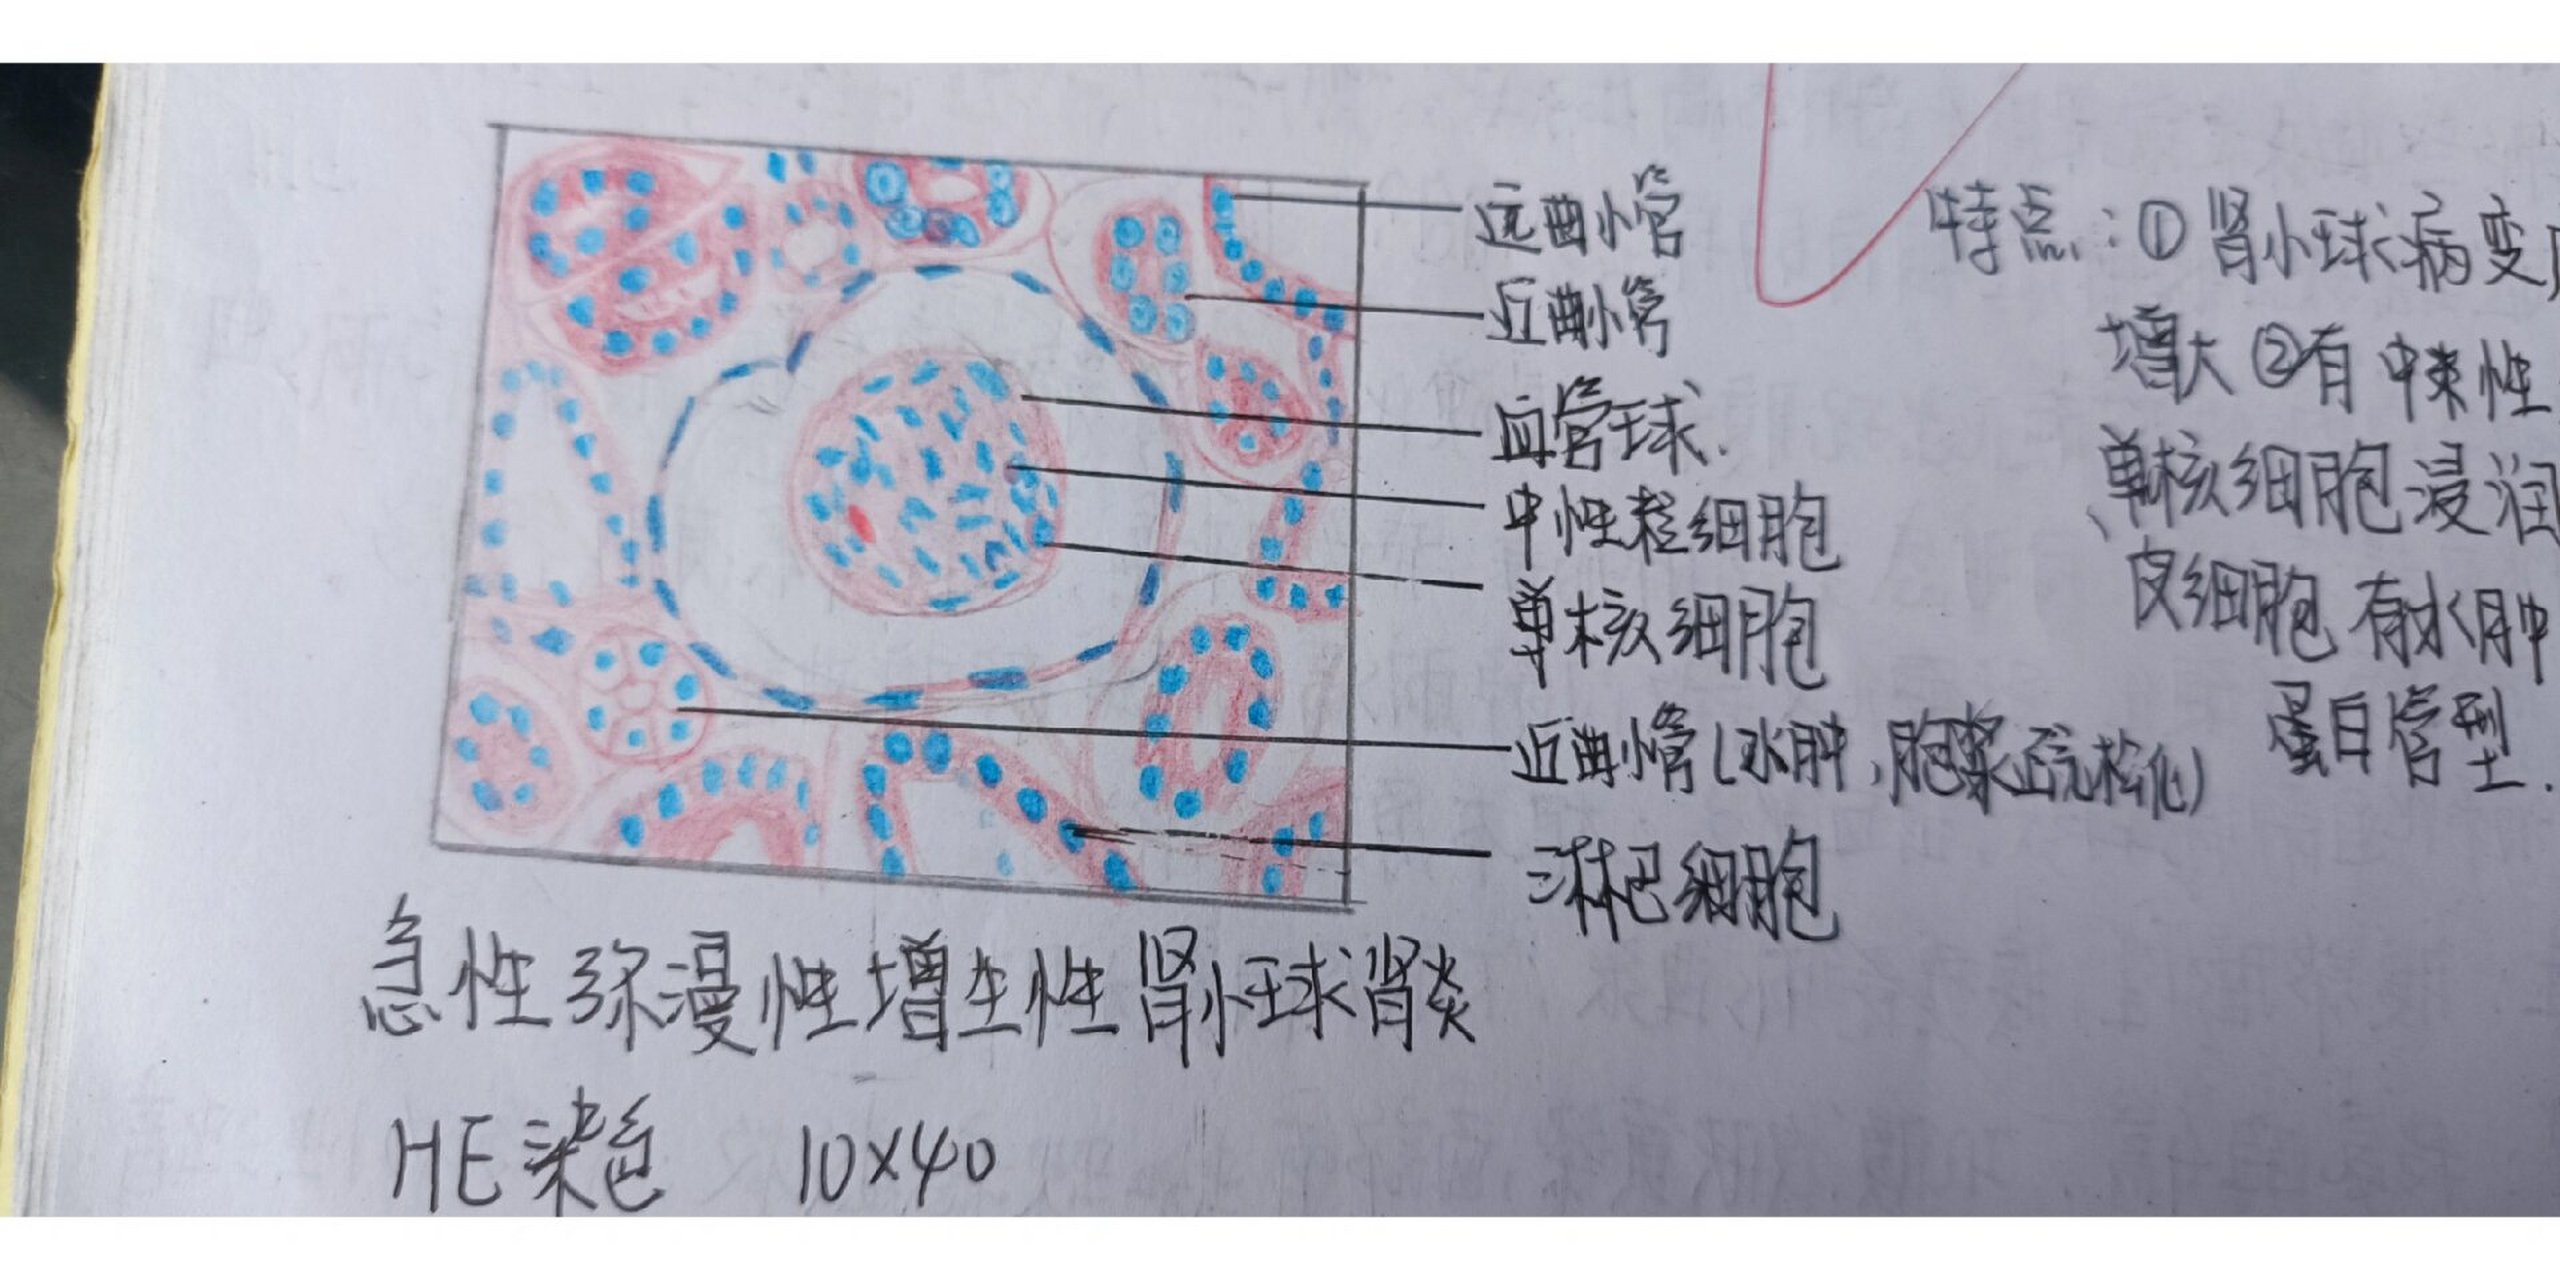 远曲小管
近曲小管
血管球.
中性粒细胞
单核细胞
近曲小管(水肿,胞浆疏松化)
淋巴细胞
特点:①肾小球病变
增大②有中束性
单核细胞浸润
皮细胞有水肿
蛋白管型.
急性弥漫性增生性肾小球肾炎
HE染色 10×40